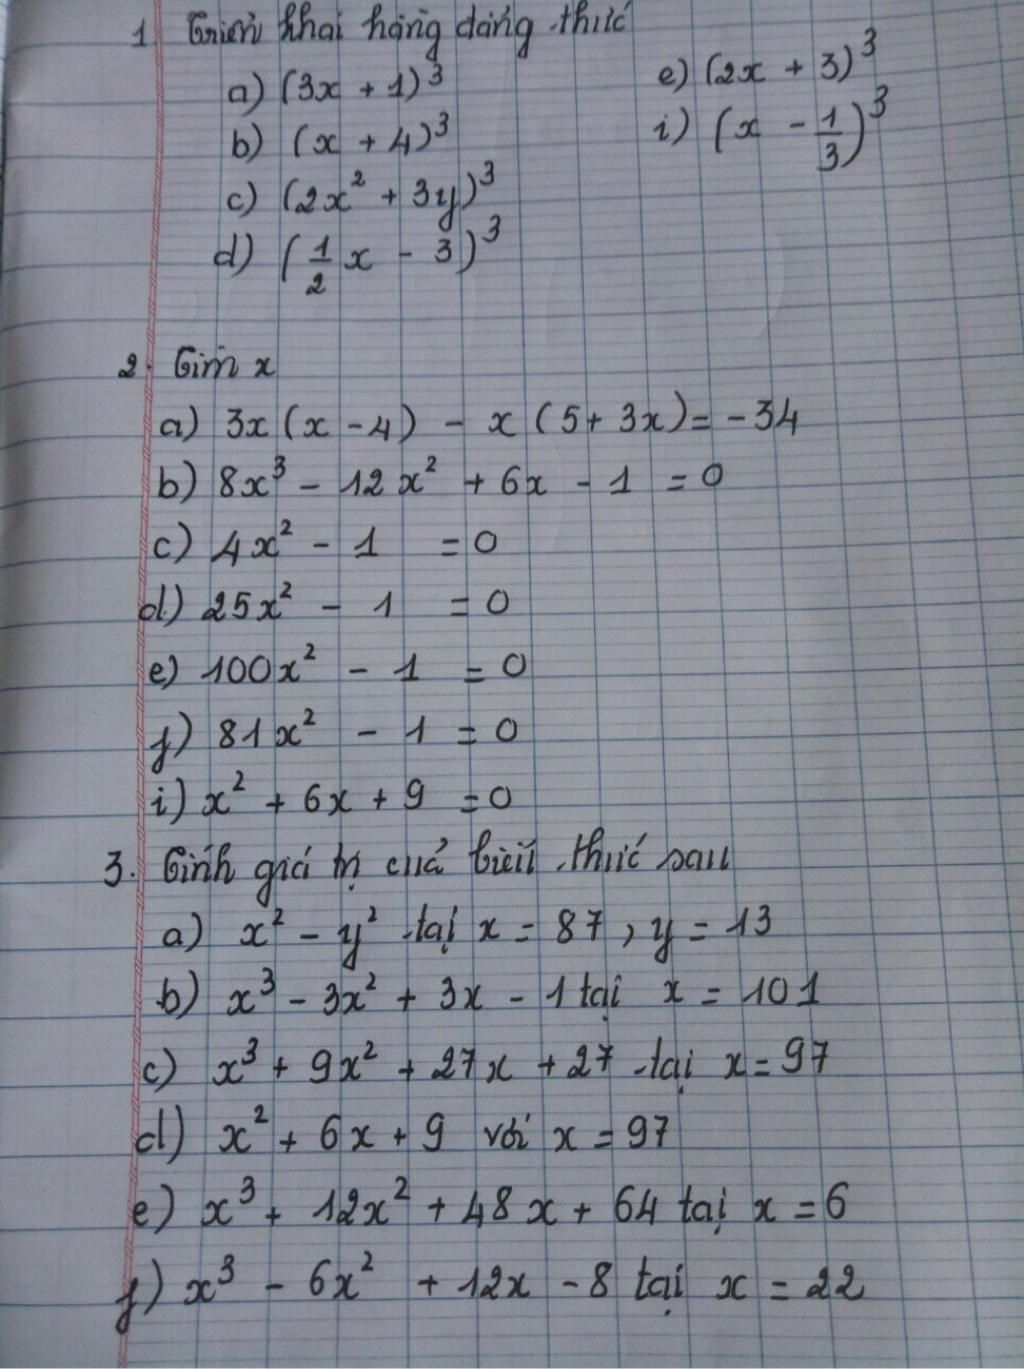 1. Triển khai hằng đẳng thức
a) (3x + 1)³ e) (2x + 3)³
b) (x + 4)³ i) (x - 1/3)³
c) (2x² + 3y)³
d) (1/2 x - 3)³
2. Tìm x
a) 3x(x - 4) - x(5 + 3x) = -34
b) 8x³ - 12x² + 6x - 1 = 0
c) 4x² - 1 = 0
d) 25x² - 1 = 0
e) 100x² - 1 = 0
f) 81x² - 1 = 0
i) x² + 6x + 9 = 0
3. Tính giá trị của biểu thức sau
a) x² - y² tại x = 87, y = 13
b) x³ - 3x² + 3x - 1 tại x = 101
c) x³ + 9x² + 27x + 27 tại x = 97
d) x² + 6x + 9 với x = 97
e) x³ + 12x² + 48x + 64 tại x = 6
f) x³ - 6x² + 12x - 8 tại x = 22